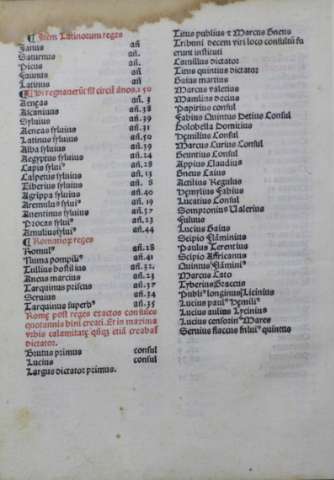 ¶ Item Latinorum reges
Janus añ
Saturnus añ.
Picus añ.
Faunus añ
Latinus añ.
¶ Hi regnauerũt sil' circil ãnos.150
Aeneas añ. 3
Ascanius añ.38
Syluius añ.
Aeneas syluius añ.31
Latinus syluius añ.50
Alba syluius añ.
Aegyptus syluius añ.24
Capis syluiꝰ añ.
Calpetus syluius añ.13
Tiberius syluius añ. 8
Agrippa syluius añ.40
Aremulꝰ syluiꝰ añ.19
Auentinus syluius añ.37
Procas syluiꝰ añ.23
Amulius syluiꝰ añ.44
¶ Romanorũ reges
Romulꝰ añ.38
Numa pompilꝰ añ.41
Tullius hostilius añ.32.
Ancus marcus añ.23
Tarquinus priscus añ.37
Seruius añ.34
Tarquinus superbꝰ añ.35
Rome post reges exactos consules
quotannis bini creati. Et in maxima
vrbis calamitate qñqꝫ etiã creabat
dictator.
Brutus primus consul
Lucius consul
Largus dictator primus.
Titus publius et Marcus Gneus
Tribuni decem viri loco consulũ fu
erunt instituti
Camillus dictator
Titus quintius dictator
Gaius martius
Marcus valerius
Manilius decius
Papirius consul
Fabius Quintus Detius Consul
Dolobella Domitius
Emilius Consul
Marcus Curius Consul
Genutius Consul
Appius Claudius
Gneus Caius
Acilius Regulus
Emylius Fabius
Lucatius Consul
Sempronius Valerius
Fuluius
Lucius Gaius
Scipio Flaminius
Paulus Terentius
Scipio Affricanus
Quintus Flaminiꝰ
Marcus Cato
Tyberius Graccus
Publiꝰ longinus Licinius
Lucius paulꝰ Emiliꝰ
Lucius aulius Lycinius
Lucius censorinꝰ Mares
Seruius flaccus fuluiꝰ quintus